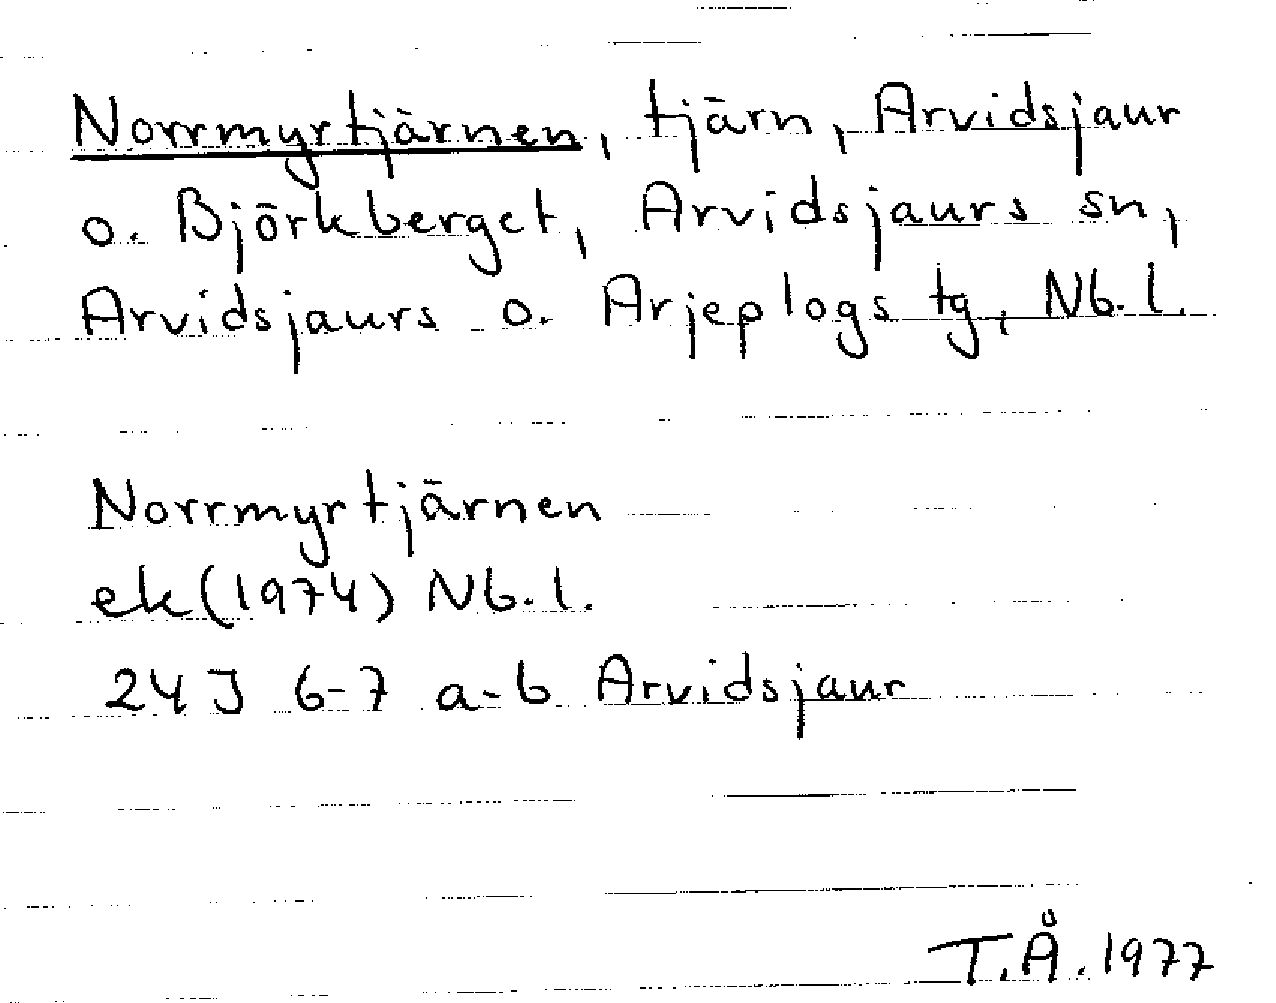 Norrmyrtjärnen, tjärn, Arvidsjaur
o. Björkberget, Arvidsjaurs sn,
Arvidsjaurs o. Arjeplogs tg, Nb.l.
Norrmyrtjärnen
ek (1974) Nb.l.
24 J 6-7 a-b Arvidsjaur
T.Å. 1977